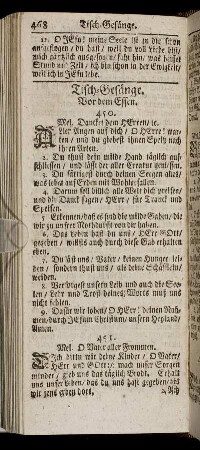 468 Tisch-Gesänge.
11. O JEsu! meine Seele ist zu dir schon
aufgeflogen / du hast / weil du voll Liebe bist /
mich gantzlich ausgesogen / fahr hin / was heisset
Stund und Zeit / ich bin schon in der Ewigkeit /
weil ich in JEsu lebe.
Tisch-Gesänge.
Vor dem Essen.
450.
Mel. Dancket dem HErren / ic.
Aller Augen auf dich / O HErre! war-
ten / und du giebest ihnen Speiß nach
ihren Arten.
2. Du thust dein milde Hand täglich auf-
schliessen / und läst der aller Creatur geniessen.
3. Du sättigest durch deinen Seegen alles /
was lebt auf Erden mit Wohlgefallen.
4. Darum soll billich alle Welt dich preisen /
und dir Danck sagen / HErr / für Tranck und
Speisen.
5. Erkennen / daß es sind die milde Gaben / die
wir zu unser Nothdurfft von dir haben.
6. Das leben hast du uns / HErr GOtt /
gegeben / willsts auch durch diese Gab erhalten
eben.
7. Du läst uns / Vater / keinen Hunger lei-
den / sondern thust uns / als deine Schäflein /
weiden.
8. Versorgest unsern Leib und auch die See-
len / Leib und Trost deines Worts muß uns
nicht fehlen.
9. Dafür wir loben / O HErr! deinen Nah-
men / durch JEsum Christum / unsern Heyland /
Amen.
451.
Mel. O Vater aller Frommen.
Ich bitten wir deine Kinder / O Vater /
HErr und GOtt / mach unser Sorgen
minder / gieb uns das täglich Brodt. Erhalt
uns unser Leben / das du uns hast gegeben / biß
wir gens